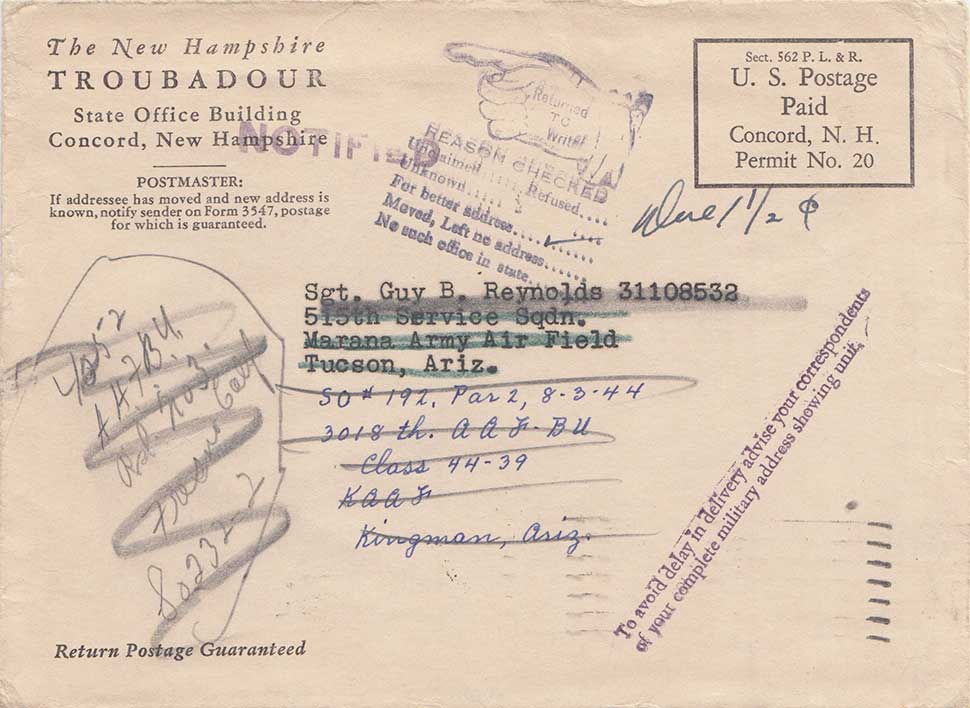 The New Hampshire
TROUBADOUR
State Office Building
Concord, New Hampshire
POSTMASTER:
If addressee has moved and new address is
known, notify sender on Form 3547, postage
for which is guaranteed.
NOTIFIED
Returned
TO
Writer
REASON CHECKED
Unclaimed.... Refused....
Unknown....
For better address......
Moved, Left no address......
No such office in state.
Sect. 562 P. L. & R.
U. S. Postage
Paid
Concord, N. H.
Permit No. 20
Due 1 1/2 ¢
Sgt. Guy B. Reynolds 31108532
515th Service Sqdn.
Marana Army Air Field
Tucson, Ariz.
SO# 192, Par 2, 8-3-44
3018 th. AAF-BU
Class 44-39
KAAF
Kingman, Ariz.
To avoid delay in delivery advise your correspondents
of your complete military address showing unit.
So 232-2
Return Postage Guaranteed